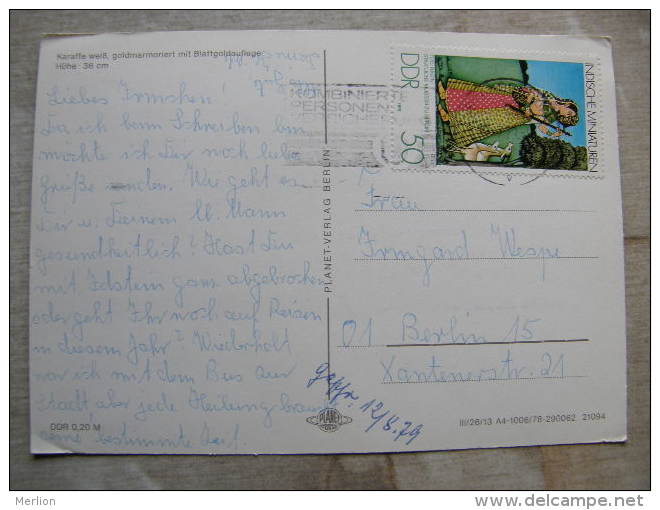 Karaffe weiß, goldmarmoriert mit Blattgoldauflage
Höhe: 36 cm
Liebes Irmchen!
Da ich beim Schreiben bin
möchte ich Dir noch liebe
Grüße senden. Wie geht es
Dir u. Deinem lb. Mann
gesundheitlich? Hast Du
mit Idstein ganz abgebrochen
oder geht Ihr noch auf Reisen
in diesem Jahr? Wiederholt
war ich mit dem Bus zur
Stadt aber jede Heilung braucht
eine bestimmte Zeit!
DDR 0,20 M
PLANET-VERLAG BERLIN
PLANET
KOMBINIERTE
PERSONEN
INDISCHE MINIATUREN
DDR 50
Frau
Irmgard Wespe
01 Berlin 15
Xantenerstr. 21
12/8.79
III/26/13 A4-1006/78-290062 21094
Merlion
delcampe.net